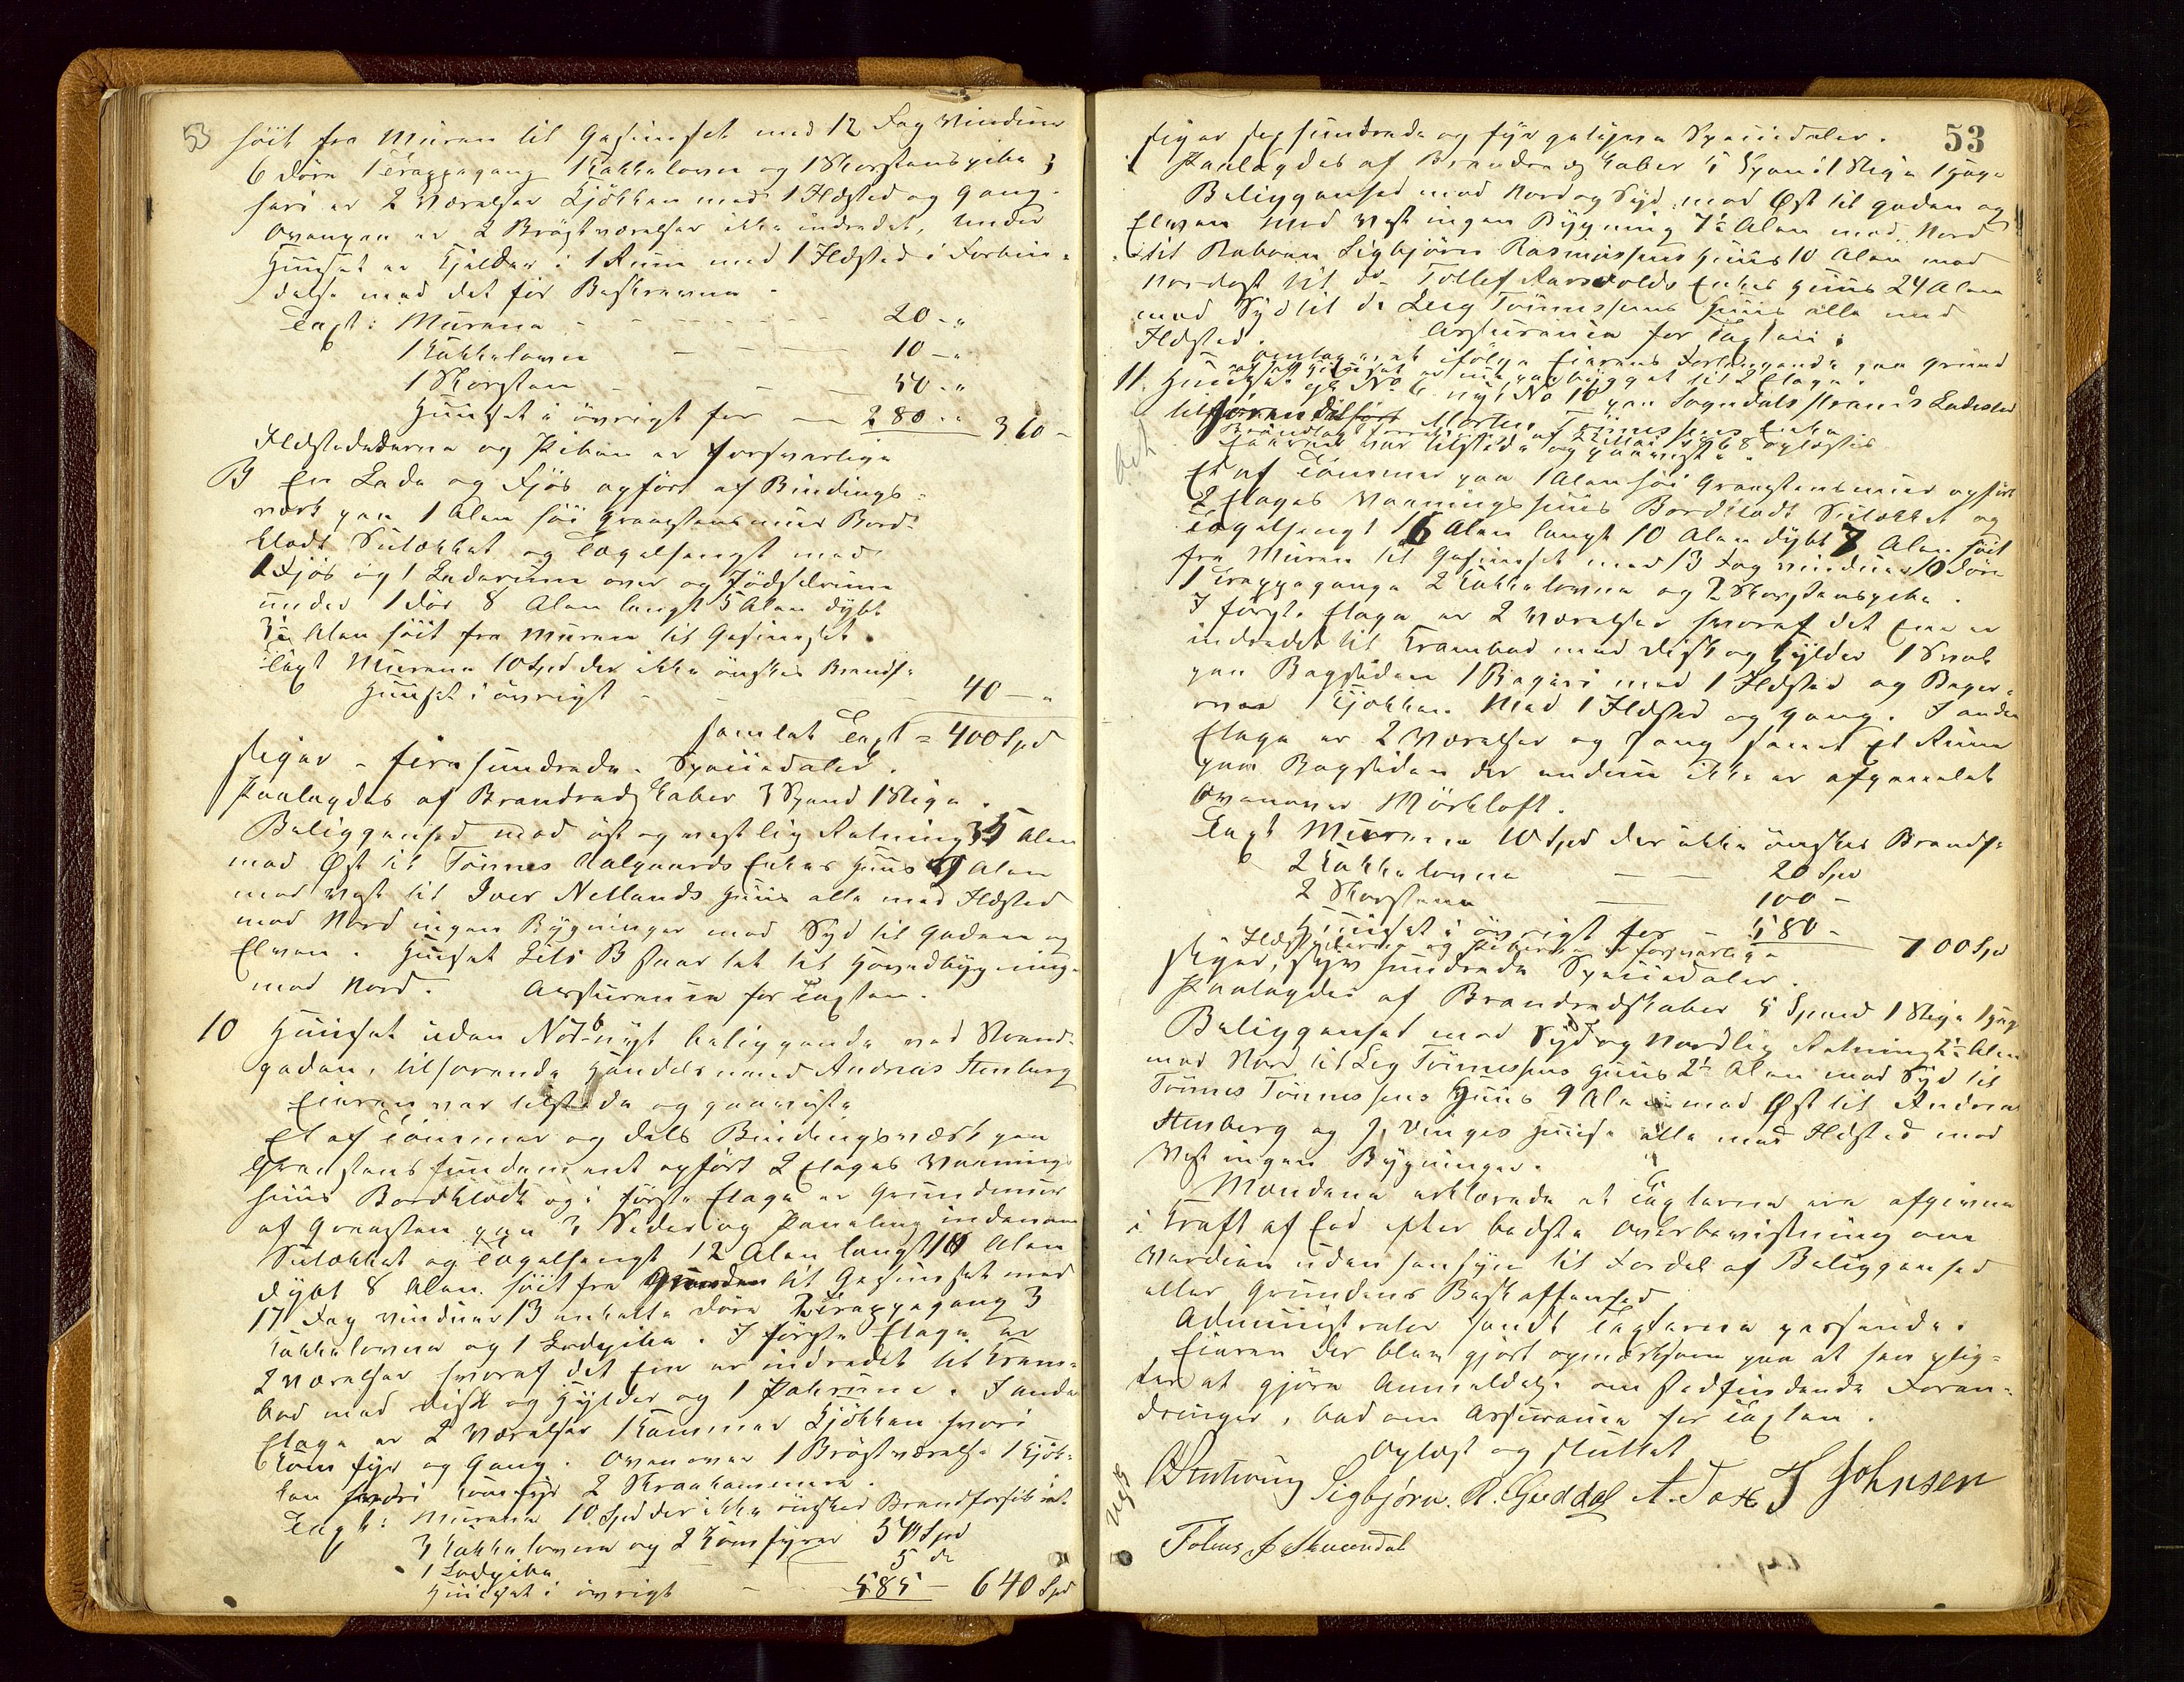 53
höit fra Muren til Gesimset med 12 Fag Vinduer
6 Döre 1 Trappegang 1 Kakkelovn og 1 Skorstenspibe;
heri er 2 Værelser Kjökken med 1 Ildsted og Gang.
Ovenpaa er 2 Bröstværelser ikke indredet, under
Huuset er Kjelder i 1 Rum med 1 Ildsted i Forbin-
delse med det för Beskrevne.
Taxt: Murene - - - 20 - "
1 Kakkelovn - - - 10 - "
1 Skorsten - - 50 - "
Huuset i övrigt for - 280 - " 360 -
Ildstederne og Piben er forsvarlige
B En Lade og Fjös opfört af Bindings-
værk paa 1 Alen höi Graastensmuur Bord-
klædt Sutækket og Tagelhængt med
1 Fjös og 1 Laderum over og Gjödselrum
under 1 Dör 8 Alen langt 5 Alen dybt
3½ Alen höit fra Muren til Gesimset.
Taxt Murene 10 Spd der ikke önskes Brandf.
Huuset i övrigt - - 40 - "
samlet Taxt = 400 Spd
siger - firehundrede - Speciedaler.
Paalagdes af Brandredskaber 3 Spand 1 Stige.
Beliggenhed mod öst og vestlig Retning 35 Alen
mod Öst til Tönnes Aalgaards Enkes Huus 9 Alen
mod Vest til Iver Netlands Huus alle med Ildsted
mod Nord ingen Bygninger mod Syd til Gaden og
Elven. Huuset Litr B stöder tæt til Hovedbygning
mod Nord. Assurance for Taxten.
10 Huuset uden No nyt 6 beliggende ved Strand-
gaden, tilhörende Handelsmand Andreas Stenberg
Eieren var tilstede og paaviste
Et af Tömmer og dels Bindingsværk paa
Graastens fundament opfört 2 Etages Vaanings
huus Bordklædt og i förste Etage er Grundmuur
af Graasten paa 3 Sider og Paneling indenom
Sutækket og Tagelhængt 12 Alen langt 10 Alen
dybt 8 Alen höit fra Grunden til Gesimset med
17 Fag Vinduer 13 enkelte Döre 2 Trappegang 3
Kakkelovne og 1 Ladpibe. I förste Etage er
2 Værelser hvoraf det Ene er indredet til Kram-
bod med Disk og Hylder og 1 Pakrum. I anden
Etage er 2 Værelser 1 Kammer Kjökken hvori
Komfyr og Gang. Ovenover 1 Bröstværelse 1 Kjök-
ken hvori Komfyr 2 Skraakammere.
Taxt: Murene 10 Spd der ikke önskes Brandforsikret
3 Kakkelovne og 2 Komfyrer 50 Spd
1 Ladpibe 5 do
Huuset i övrigt - - 585 - 640 Spd
53
siger sexhundrede og fyrgetyve Speciedaler.
Paalagdes af Brandredskaber 5 Spand 1 Stige 1 Hage
Beliggenhed mod Nord og Syd: mod Öst til Gaden og
Elven mod Vest ingen Bygning 7½ Alen mod Nord
til Naboen Sigbjörn Rasmussens Huus 10 Alen mod
Nordost til do Tollef Aarvolds Enkes Huus 24 Alen
mod Syd til do Leeg Tönnessens Huus alle med
Ildsted. Assurance for Taxten.
11. Huuset gl No 6 nyt No 10 paa Sogndalsstrands Ladested
tilhörende Morten Tönnessens Enke
Eieren var tilstede og paaviste
Et af Tömmer paa 1 Alen höi Graastensmuur opfört
2 Etages Vaaningshuus Bordklædt Sutækket og
Tagelhængt 16 Alen langt 10 Alen dybt 7 Alen höit
fra Muren til Gesimset med 13 Fag Vinduer 10 Döre
1 Trappegange 2 Kakkelovne og 2 Skorstenspibe.
I förste Etage er 2 Værelser hvoraf det Ene er
indredet til Krambod med Disk og Hylder 1 Sval
paa Bagsiden 1 Bageri med 1 Ildsted og Bager-
ovn 1 Kjökken med 1 Ildsted og Gang. I anden
Etage er 2 Værelser og Gang samt Et Rum
paa Bagsiden der endnu ikke er afpanelet
Ovenover Mörkloft.
Taxt Murene 10 Spd der ikke önskes Brandf.
2 Kakkelovne - - 20 Spd
2 Skorstene - 100 -
Huuset i övrigt for 580 - 700 Spd
Ildstederne og Piberne er forsvarlige
siger, syv hundrede Speciedaler.
Paalagdes af Brandredskaber 5 Spand 1 Stige 1 Hage
Beliggenhed mod Syd og Nordlig Retning 2½ Alen
mod Nord til Leeg Tönnessens Huus 2½ Alen mod Syd til
Tönnes Tönnessens Huus 9 Alen mod Öst til Andreas
Stenberg og J. Vinges Huuse alle med Ildsted mod
Vest ingen Bygninger.
Mændene erklærede at Taxterne ere afgivne
i Kraft af Eed efter bedste Overbevisning om
Værdien uden Hensyn til Fordel af Beliggenhed
eller Grundens Beskaffenhed
Administrator fandt Taxterne passende.
Eieren der blev gjort opmærksom paa at han plig-
ter at gjöre Anmeldelse om stedfindende Foran-
dringer, bad om Assurance for Taxten.
Oplæst og sluttet
Sigbjörn R. Guddal A. Foss J Johnsen